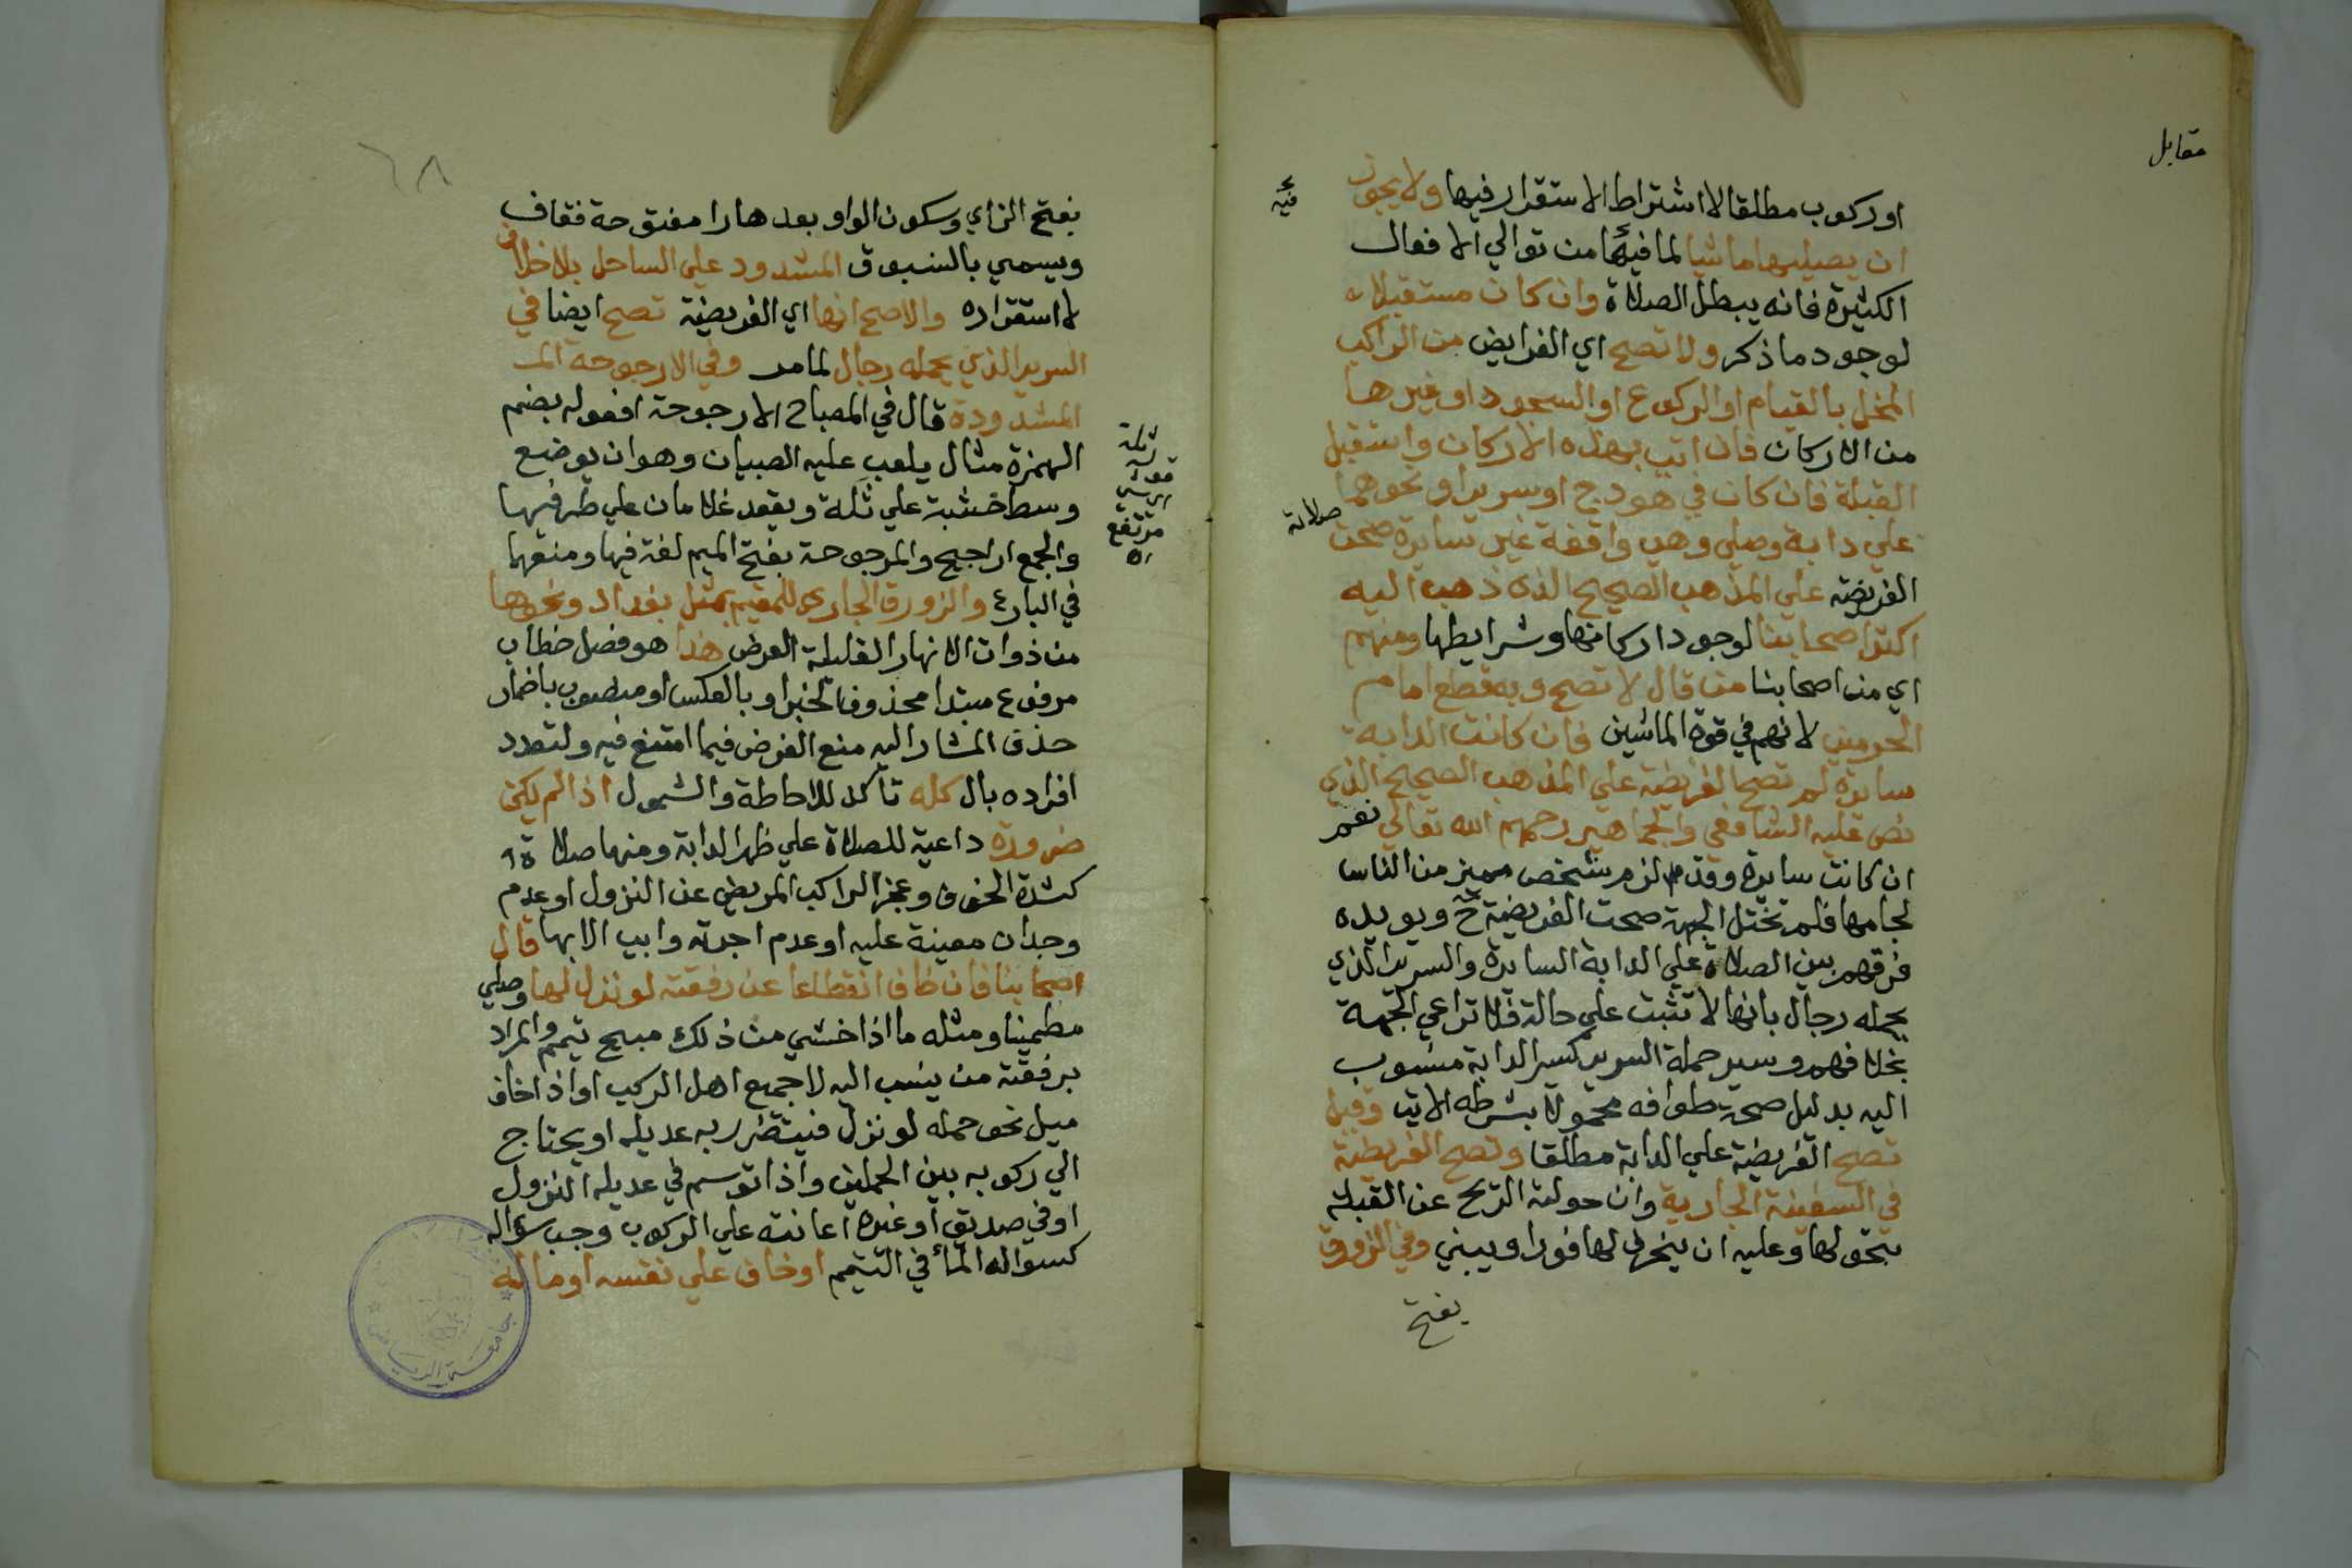 مقابل
او ركوب مطلقا لا اشتراط الاستقرار فيها ولا يجوز
فيه
ان يصليها ماشيا لما فيها من توالي الافعال
الكثيرة فانه يبطل الصلاة وان كان مستقبلا
لوجود ما ذكر ولا تصح اي الفرايض من الراكب
المخل بالقيام او الركوع او السجود او غيرها
من الاركان فان اتي بهذه الاركان واستقبل
القبلة فان كان في هودج او سرير او نحوهما
علي دابة وصلي وهي واقفة غير سايرة صحت
صلاته
الفريضة علي المذهب الصحيح الذي ذهب اليه
اكثر اصحابنا لوجود اركانها وشرايطها ومنهم
اي من اصحابنا من قال لا تصح وبه قطع امام
الحرمين لانهم في قوة الماشين فان كانت الدابة
سايرة لم تصح الفريضة علي المذهب الصحيح الذي
نص عليه الشافعي والجماهير رحمهم الله تعالي نعم
ان كانت سايرة وقد لزم شخص مميز من الناس
لجامها فلم تختل الجهة صحت الفريضة ح ويويده
فرقهم بين الصلاة علي الدابة السايرة والسرير الذي
يحمله رجال بانها لا تثبت علي حالة فلا تراعي الجهة
بخلافهم وسير حملة السرير كسير الدابة منسوب
اليه بدليل صحة طوافه محمولا بشرطه الاتي وقيل
تصح الفريضة علي الدابة مطلقا وتصح الفريضة
في السفينة الجارية وان حولته الريح عن القبلة
بتحولها وعليه ان ينحرف لها فورا ويبني وفي الزورق
بفتح
٦٨
بفتح الزاي وسكون الواو بعدها را مفتوحة فقاف
ويسمي بالسنبوق المشدود علي الساحل بلا خلاف
لاستقراره والاصح انها اي الفريضة تصح ايضا في
السرير الذي يحمله رجال لما مر وفي الارجوحة المـ
المشدودة قال في المصباح الارجوحة افعولة بضم
الهمزة مثال يلعب عليه الصبيان وهو ان يوضع
وسط خشبة علي تلة ويقعد غلامان علي طرفيها
تلة
مرتفع
اه
والجمع اراجيح والمرجوحة بفتح الميم لغة فيها ومنعها
في البارع والزورق الجاري للمقيم بمثل بغداد ونحوها
من ذوات الانهار القليلة العرض هذا هو فصل خطاب
مرفوع مبتدا محذوف الخبر او بالعكس او منصوب باضمار
حذف المشار اليه منع الفرض فيما امتنع فيه ولتعدد
افراده بال كله تاكد للاحاطة والشمول اذا لم يكن
ضرورة داعية للصلاة علي ظهر الدابة ومنها صلاة
كشدة الخوف وعجز الراكب المريض عن النزول او عدم
وجدان معينة عليه او عدم اجرته وابي الا بها قال
اصحابنا فان خاف انقطاعا عن رفقته لو نزل لها وصلي
مطمينا ومثله ما اذا خشي من ذلك مبيح تيمم والمراد
برفقته من ينسب اليه لا جميع اهل الركب او اذا خاف
ميل نحو حمله لو نزل فيتضرر به عديله او يحتاج
الي ركوبه بين الحملين واذا توسم في عديله النزول
او في صديق او غيره اعانته علي الركوب وجب سواله
كسواله الماء في التيمم او خاف علي نفسه او ماله
جامعة الرياض